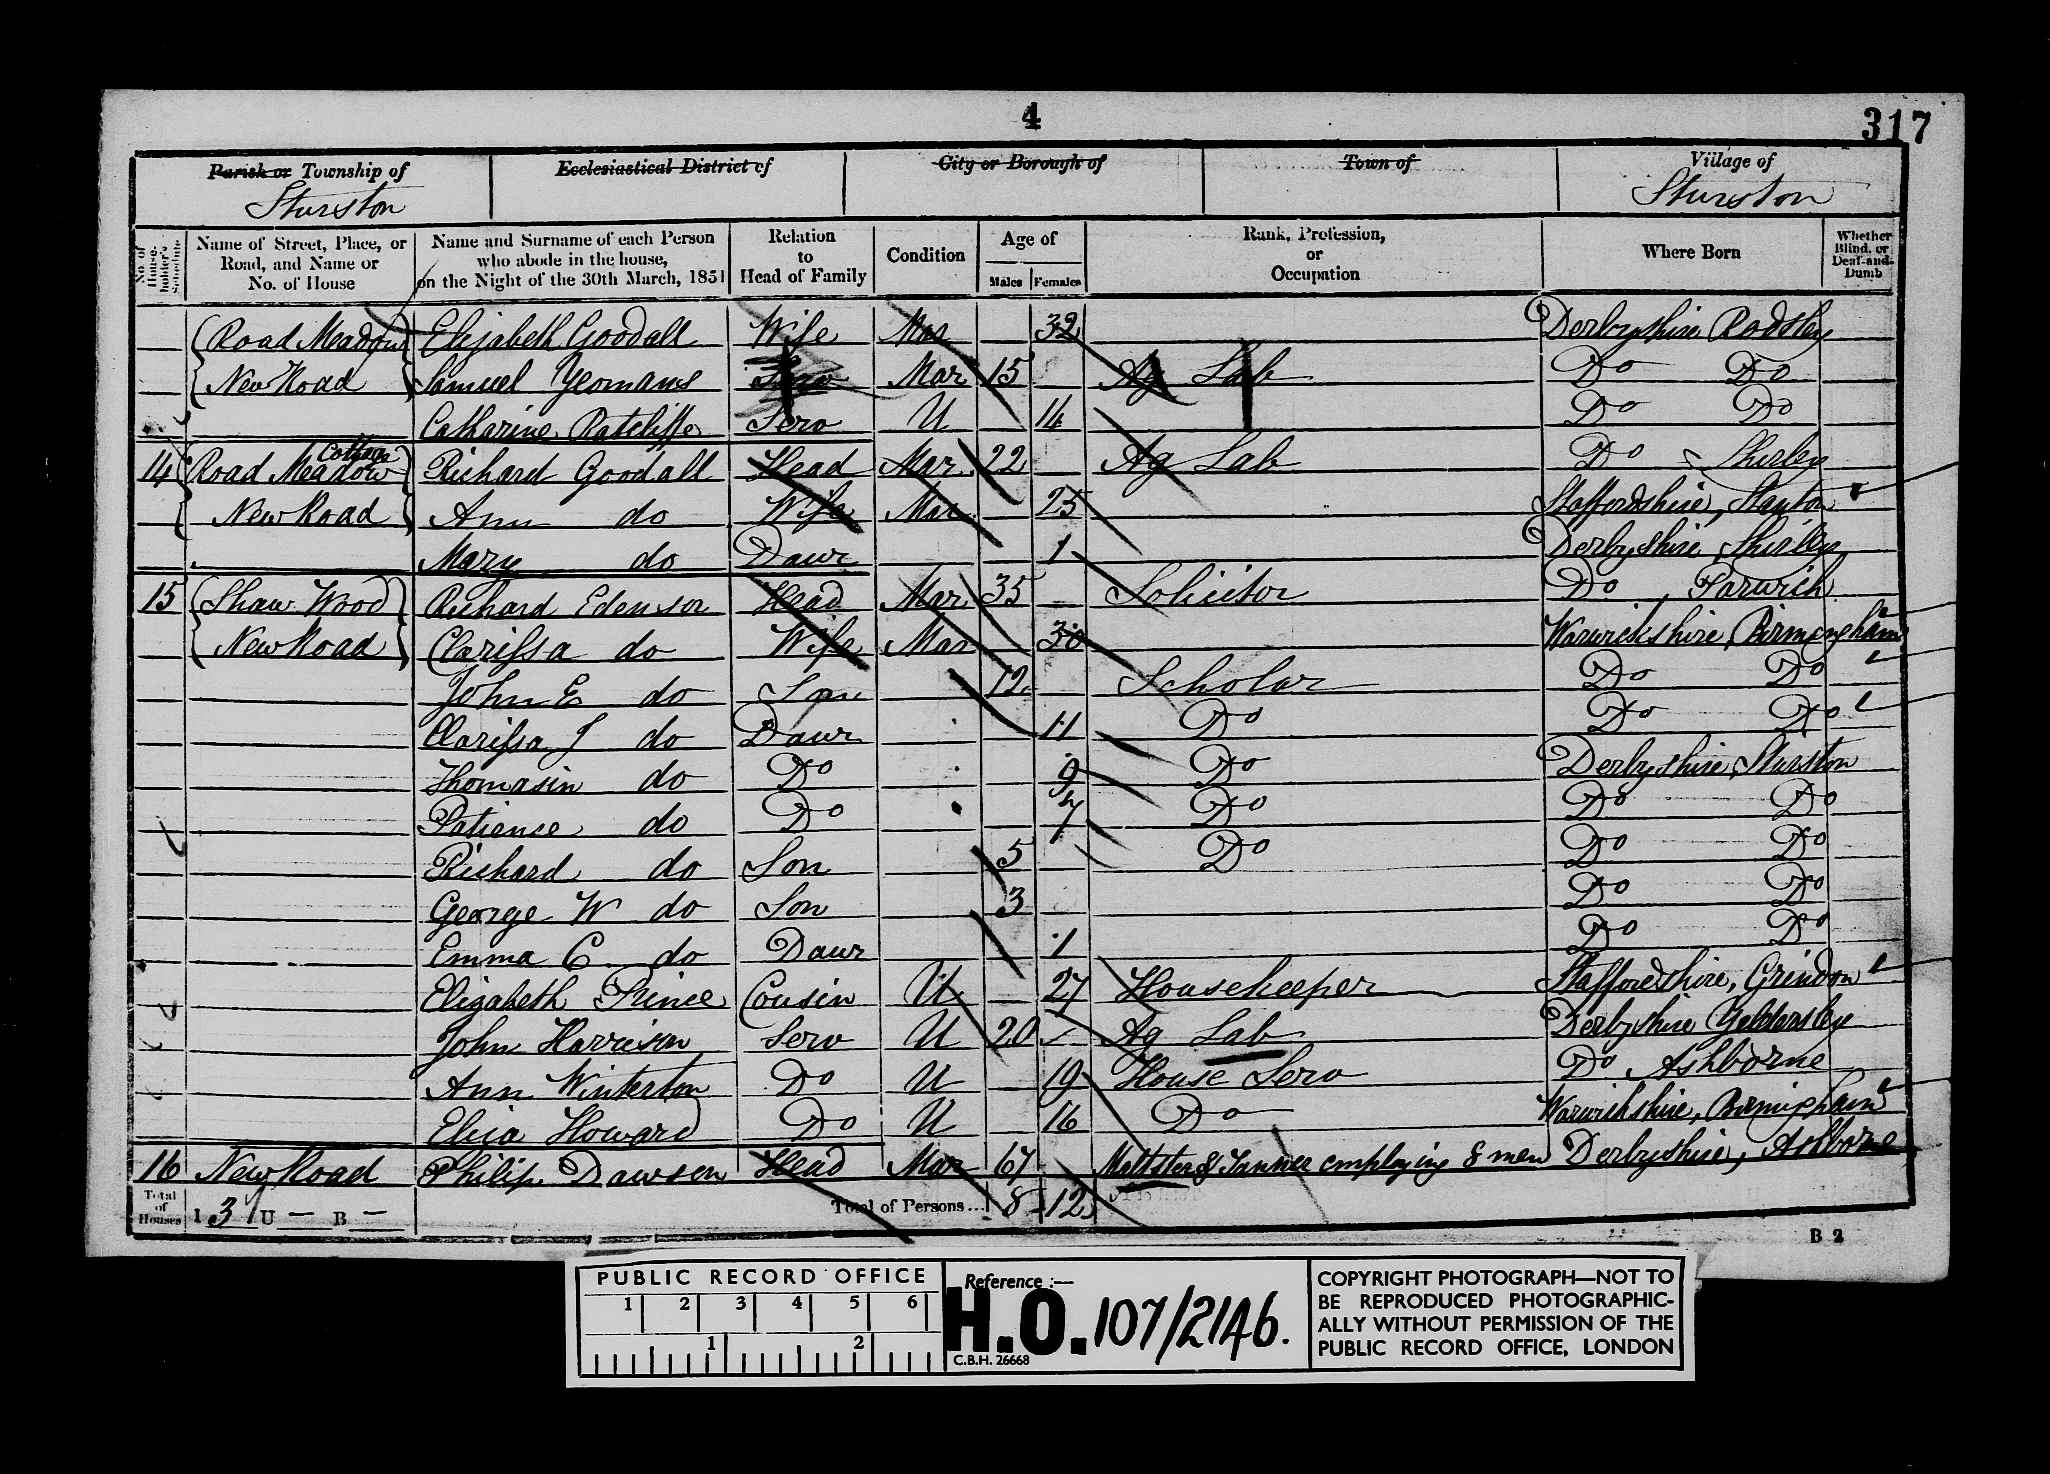 4
317
Parish or Township of
Sturston
Ecclesiastical District of
City or Borough of
Town of
Village of
Sturston
No. of House-holder's Schedule
Name of Street, Place, or Road, and Name or No. of House
Name and Surname of each Person who abode in the house, on the Night of the 30th March, 1851
Relation to Head of Family
Condition
Age of
Males Females
Rank, Profession, or Occupation
Where Born
Whether Blind, or Deaf-and-Dumb
Road Meadow Elizabeth Goodall Wife Mar 32 Derbyshire Rodsley
New Road Samuel Yeomans Serv Mar 15 Ag Lab Do Do
Catharine Ratcliffe Serv U 14 Do Do
14 Road Meadow Cottage Richard Goodall Head Mar 22 Ag Lab Do Shirley
New Road Ann do Wife Mar 25 Staffordshire, Stanton
Mary do Daur 1 Derbyshire Shirley
15 Shaw Wood Richard Edensor Head Mar 35 Solicitor Do Parwich
New Road Clarissa do Wife Mar 30 Warwickshire, Birmingham
John E do Son 12 Scholar Do Do
Clarissa J do Daur 11 Do Do Do
Thomasin do Do 9 Do Derbyshire, Sturston
Patience do Do 7 Do Do Do
Richard do Son 5 Do Do Do
George W do Son 3 Do Do
Emma C do Daur 1 Do Do
Elizabeth Prince Cousin U 27 Housekeeper Staffordshire, Grindon
John Harrison Serv U 20 Ag Lab Derbyshire Yeldersley
Ann Winterton Do U 19 House Serv Do Ashborne
Eliza Howard Do U 16 Do Warwickshire, Birmigham
16 New Road Philip Dawson Head Mar 67 Maltster & Tanner employing 8 men Derbyshire, Ashborne
Total of Houses I 3 U — B —
Total of Persons... 8 12
B 2
PUBLIC RECORD OFFICE
1 2 3 4 5 6
1 2
Reference :—
H.O. 107/2146.
C.B.H. 26668
COPYRIGHT PHOTOGRAPH—NOT TO
BE REPRODUCED PHOTOGRAPHIC-
ALLY WITHOUT PERMISSION OF THE
PUBLIC RECORD OFFICE, LONDON